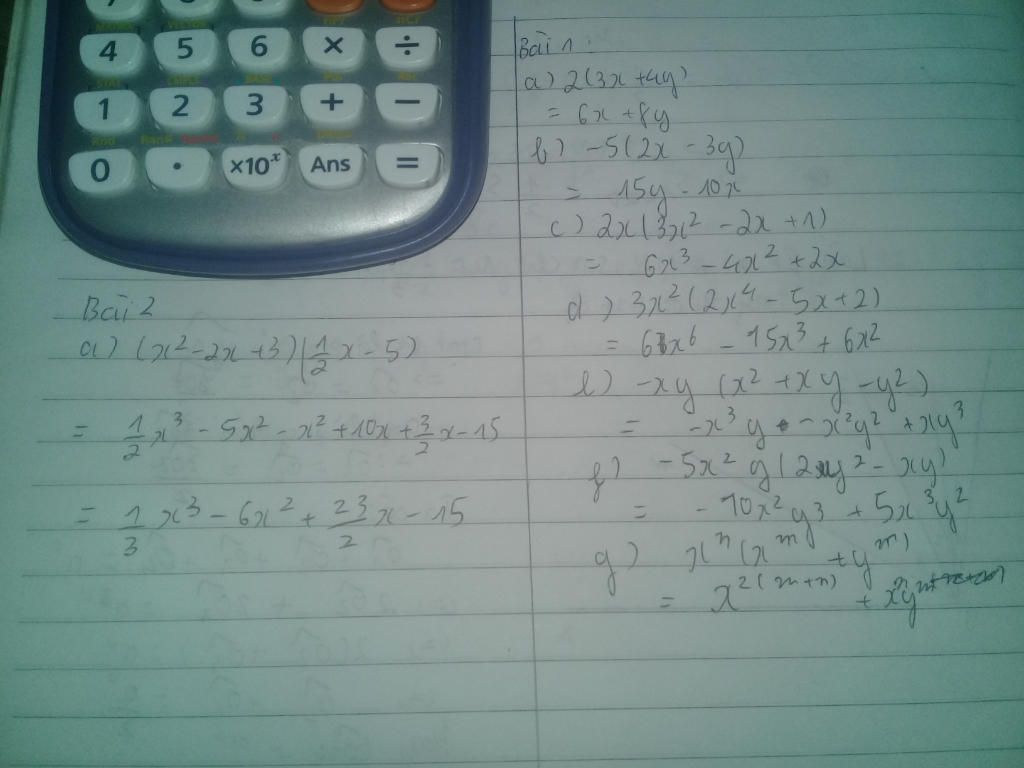 4 5 6 × ÷
1 2 3 + −
0 . ×10ˣ Ans =
Bài 1:
a) 2(3x + 4y)
= 6x + 8y
b) -5(2x - 3y)
= 15y - 10x
c) 2x(3x² - 2x + 1)
= 6x³ - 4x² + 2x
d) 3x²(2x⁴ - 5x + 2)
= 6x⁶ - 15x³ + 6x²
e) -xy (x² + xy - y²)
= -x³y - x²y² + xy³
f) -5x²y(2y² - xy)
= -10x²y³ + 5x³y²
g) xⁿ(xᵐ + yᵐ)
= x²⁽ᵐ⁺ⁿ⁾ + xⁿyᵐ
Bài 2
a) (x² - 2x + 3)(1/2x - 5)
= 1/2x³ - 5x² - x² + 10x + 3/2x - 15
= 1/3x³ - 6x² + 23/2x - 15